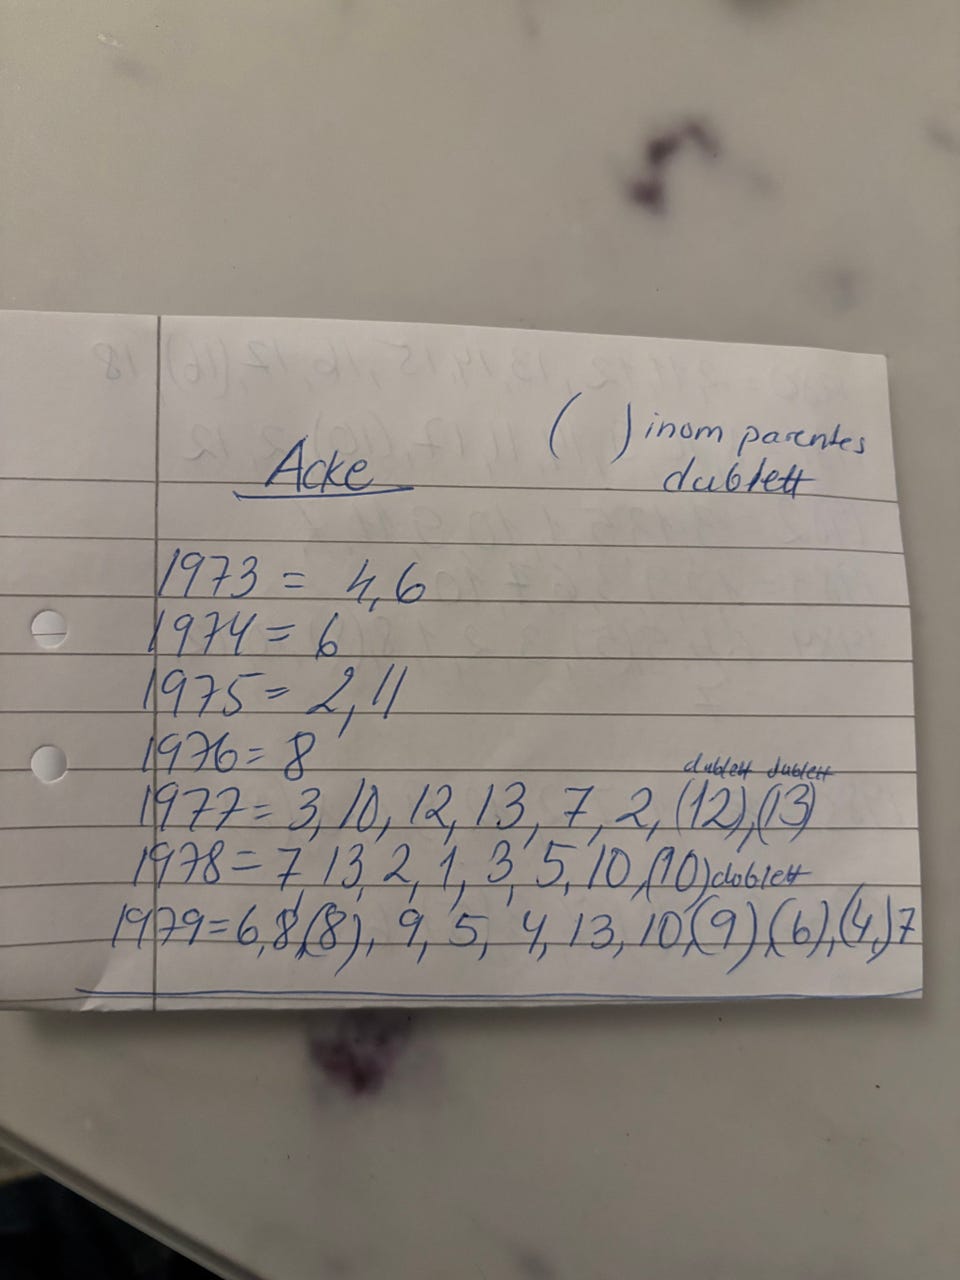 ( ) inom parentes
Acke dublett
1973 = 4,6
1974 = 6
1975 = 2,11
1976 = 8
dublett dublett
1977 = 3, 10, 12, 13, 7, 2, (12), (13)
1978 = 7, 13, 2, 1, 3, 5, 10, (10) doblett
1979 = 6, 8, (8), 9, 5, 4, 13, 10, (9), (6), (4,) 7